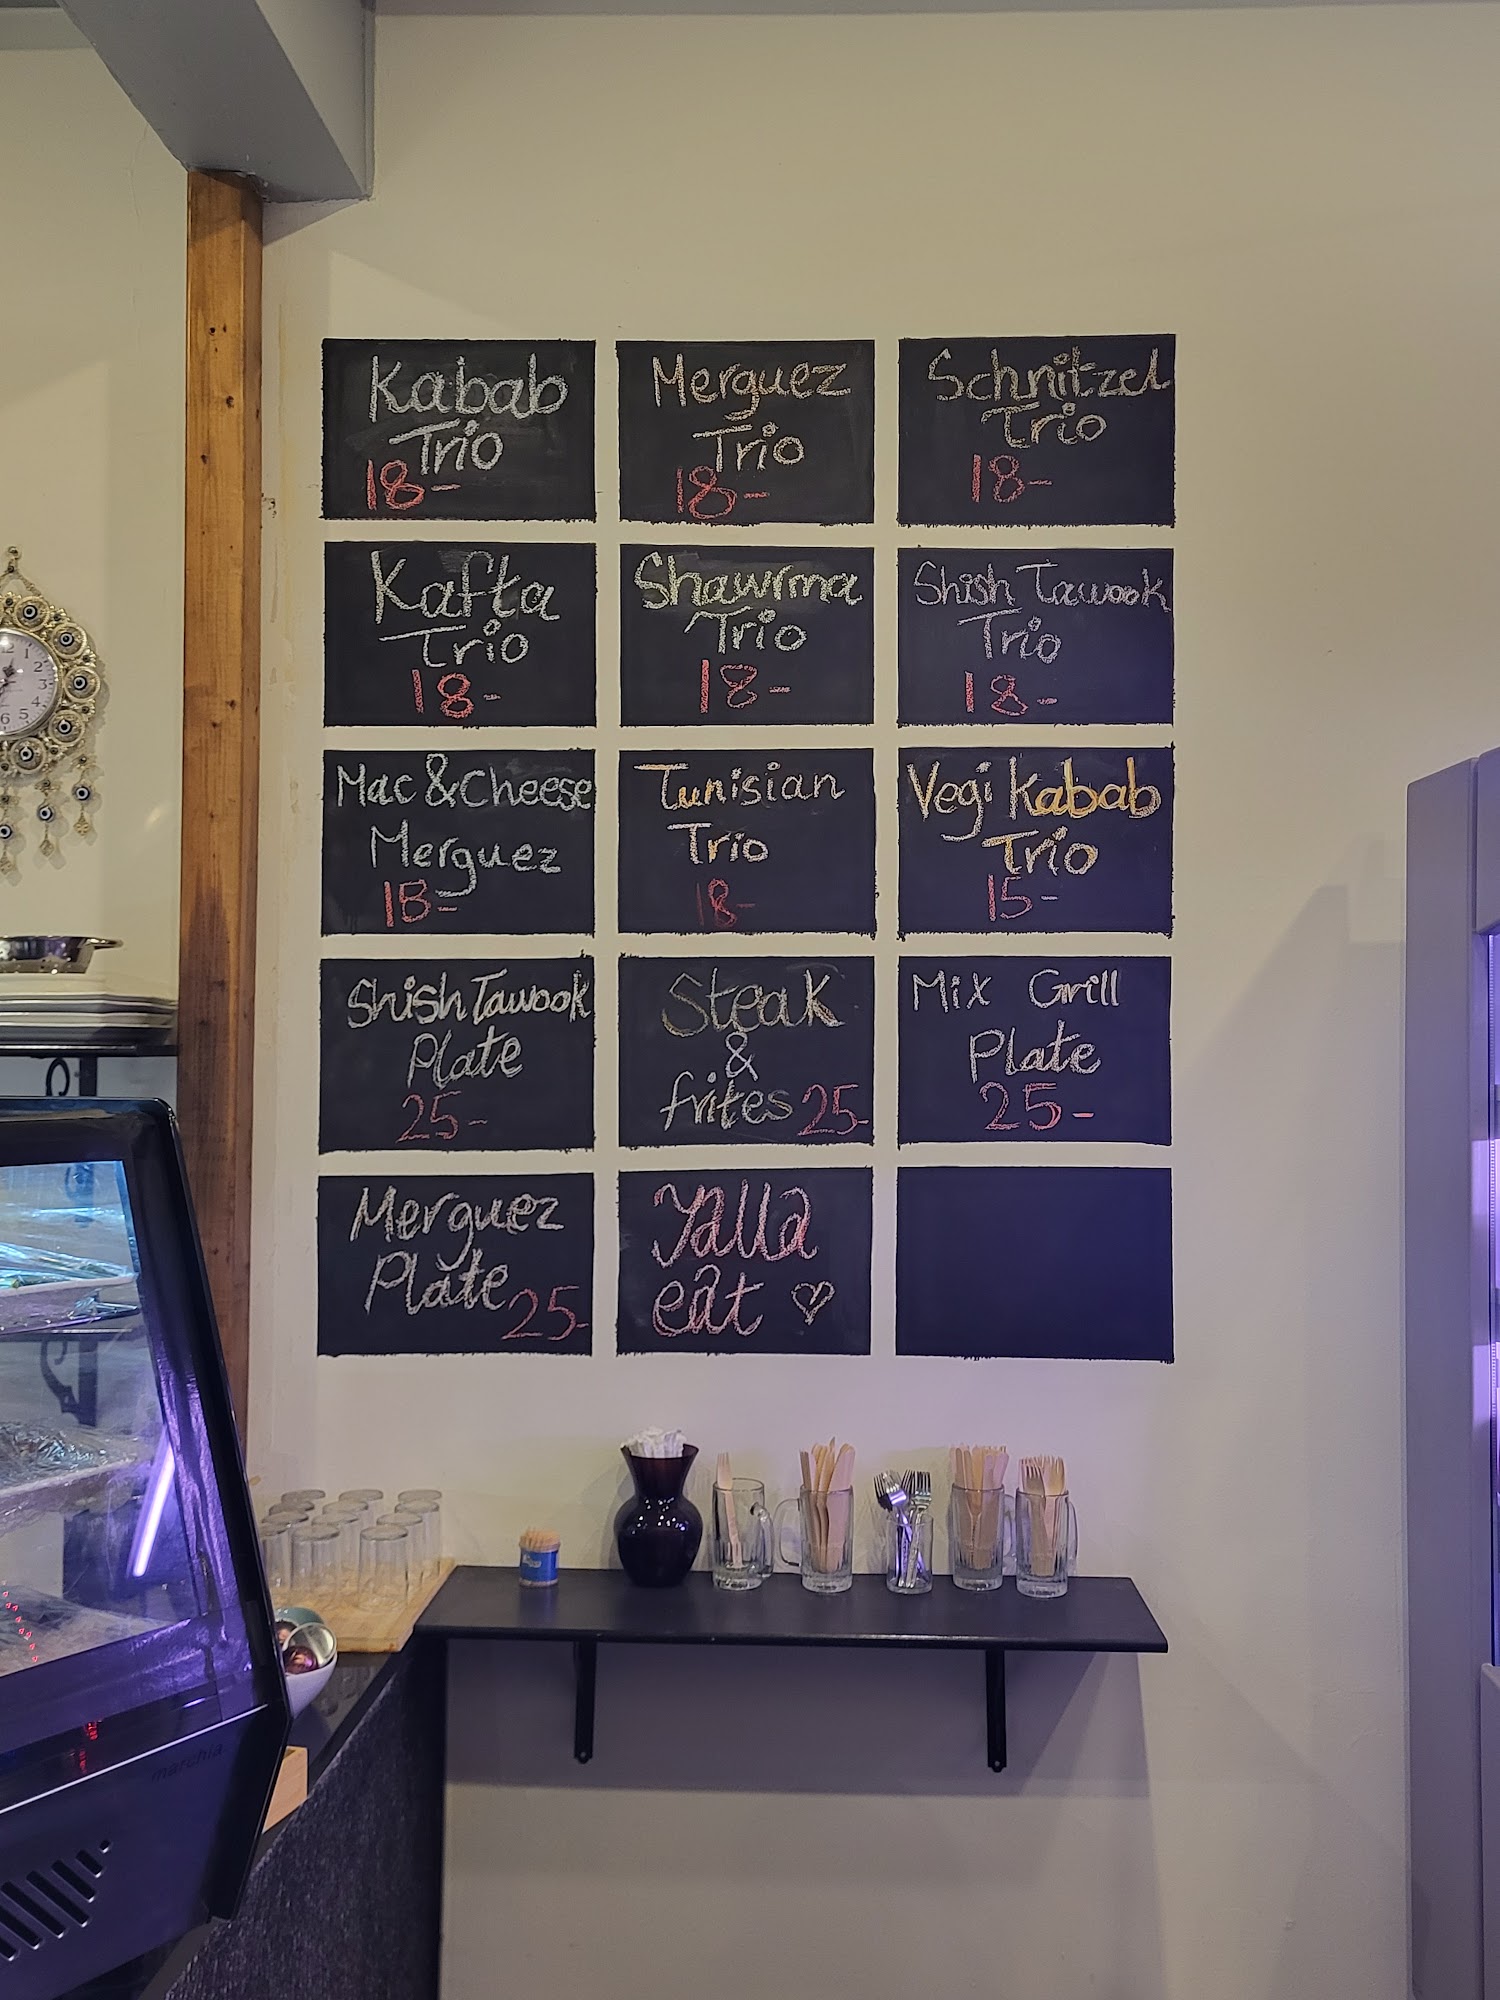 Kabab
Trio
18-
Merguez
Trio
18-
Schnitzel
Trio
18-
Kafta
Trio
18-
Shawrma
Trio
18-
Shish Tawook
Trio
18-
Mac & Cheese
Merguez
18-
Tunisian
Trio
18-
Vegi Kabab
Trio
15-
Shish Tawook
Plate
25-
Steak
&
frites 25-
Mix Grill
Plate
25-
Merguez
Plate 25-
Yalla
eat ♡
12
1
2
3
4
5
6
marchia